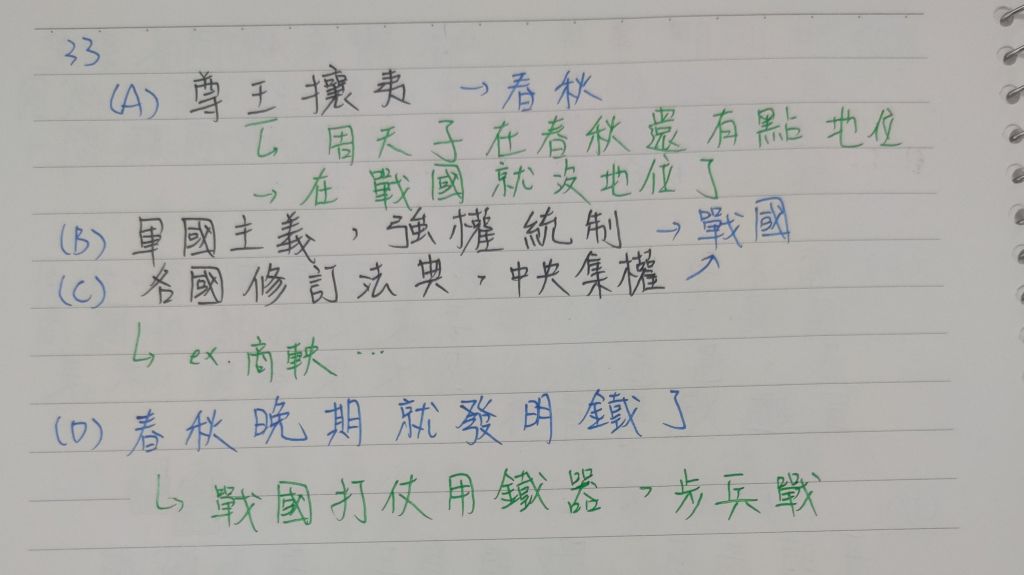 33
(A) 尊王攘夷 → 春秋
↳ 周天子在春秋還有點地位
→ 在戰國就沒地位了
(B) 軍國主義，強權統制 → 戰國
(C) 各國修訂法典，中央集權 ↗
↳ ex. 商軮…
(D) 春秋晚期就發明鐵了
↳ 戰國打仗用鐵器，步兵戰